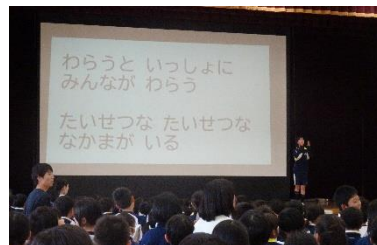 わらうと いっしょに
みんなが わらう
たいせつな たいせつな
なかまが いる